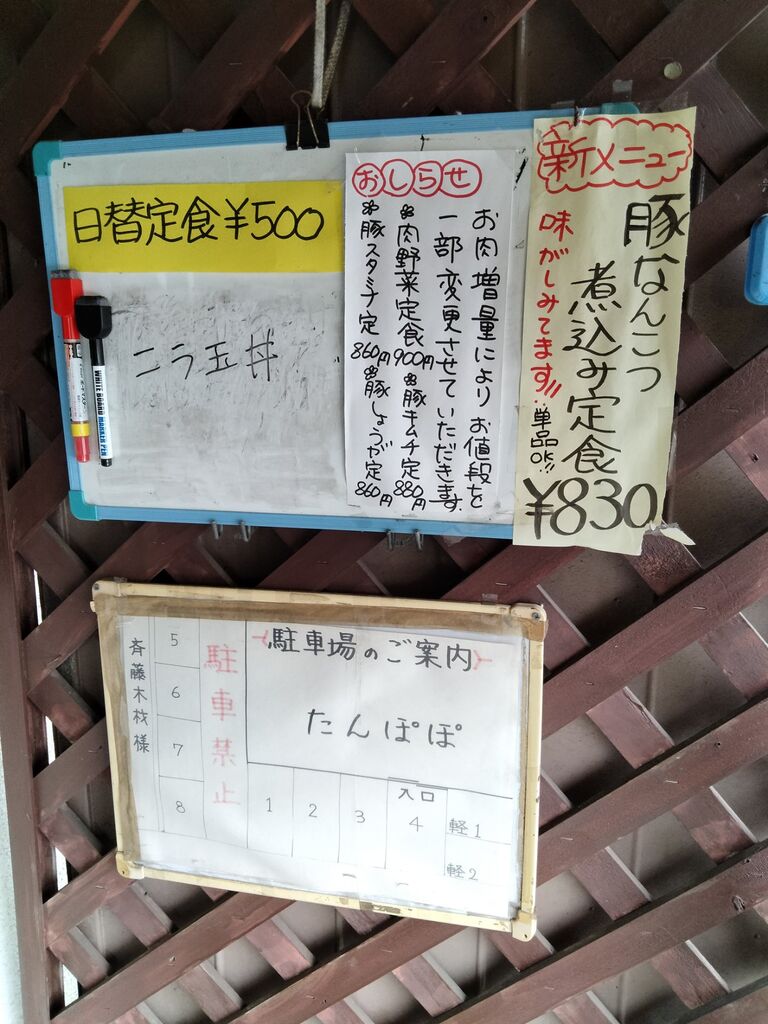 日替定食¥500
ニラ玉丼
WHITE BOARD MARKER PEN
おしらせ
お肉増量により お値段を
一部変更させていただきます
肉野菜定食900円
豚キムチ定880円
豚スタミナ定860円
豚しょうが定860円
新メニュー
豚なんこつ
煮込み定食
味がしみてます!!
単品OK!!
¥830
駐車場のご案内
たんぽぽ
斉藤木材様
5
6
7
8
駐車禁止
1
2
3
入口
4
軽1
軽2